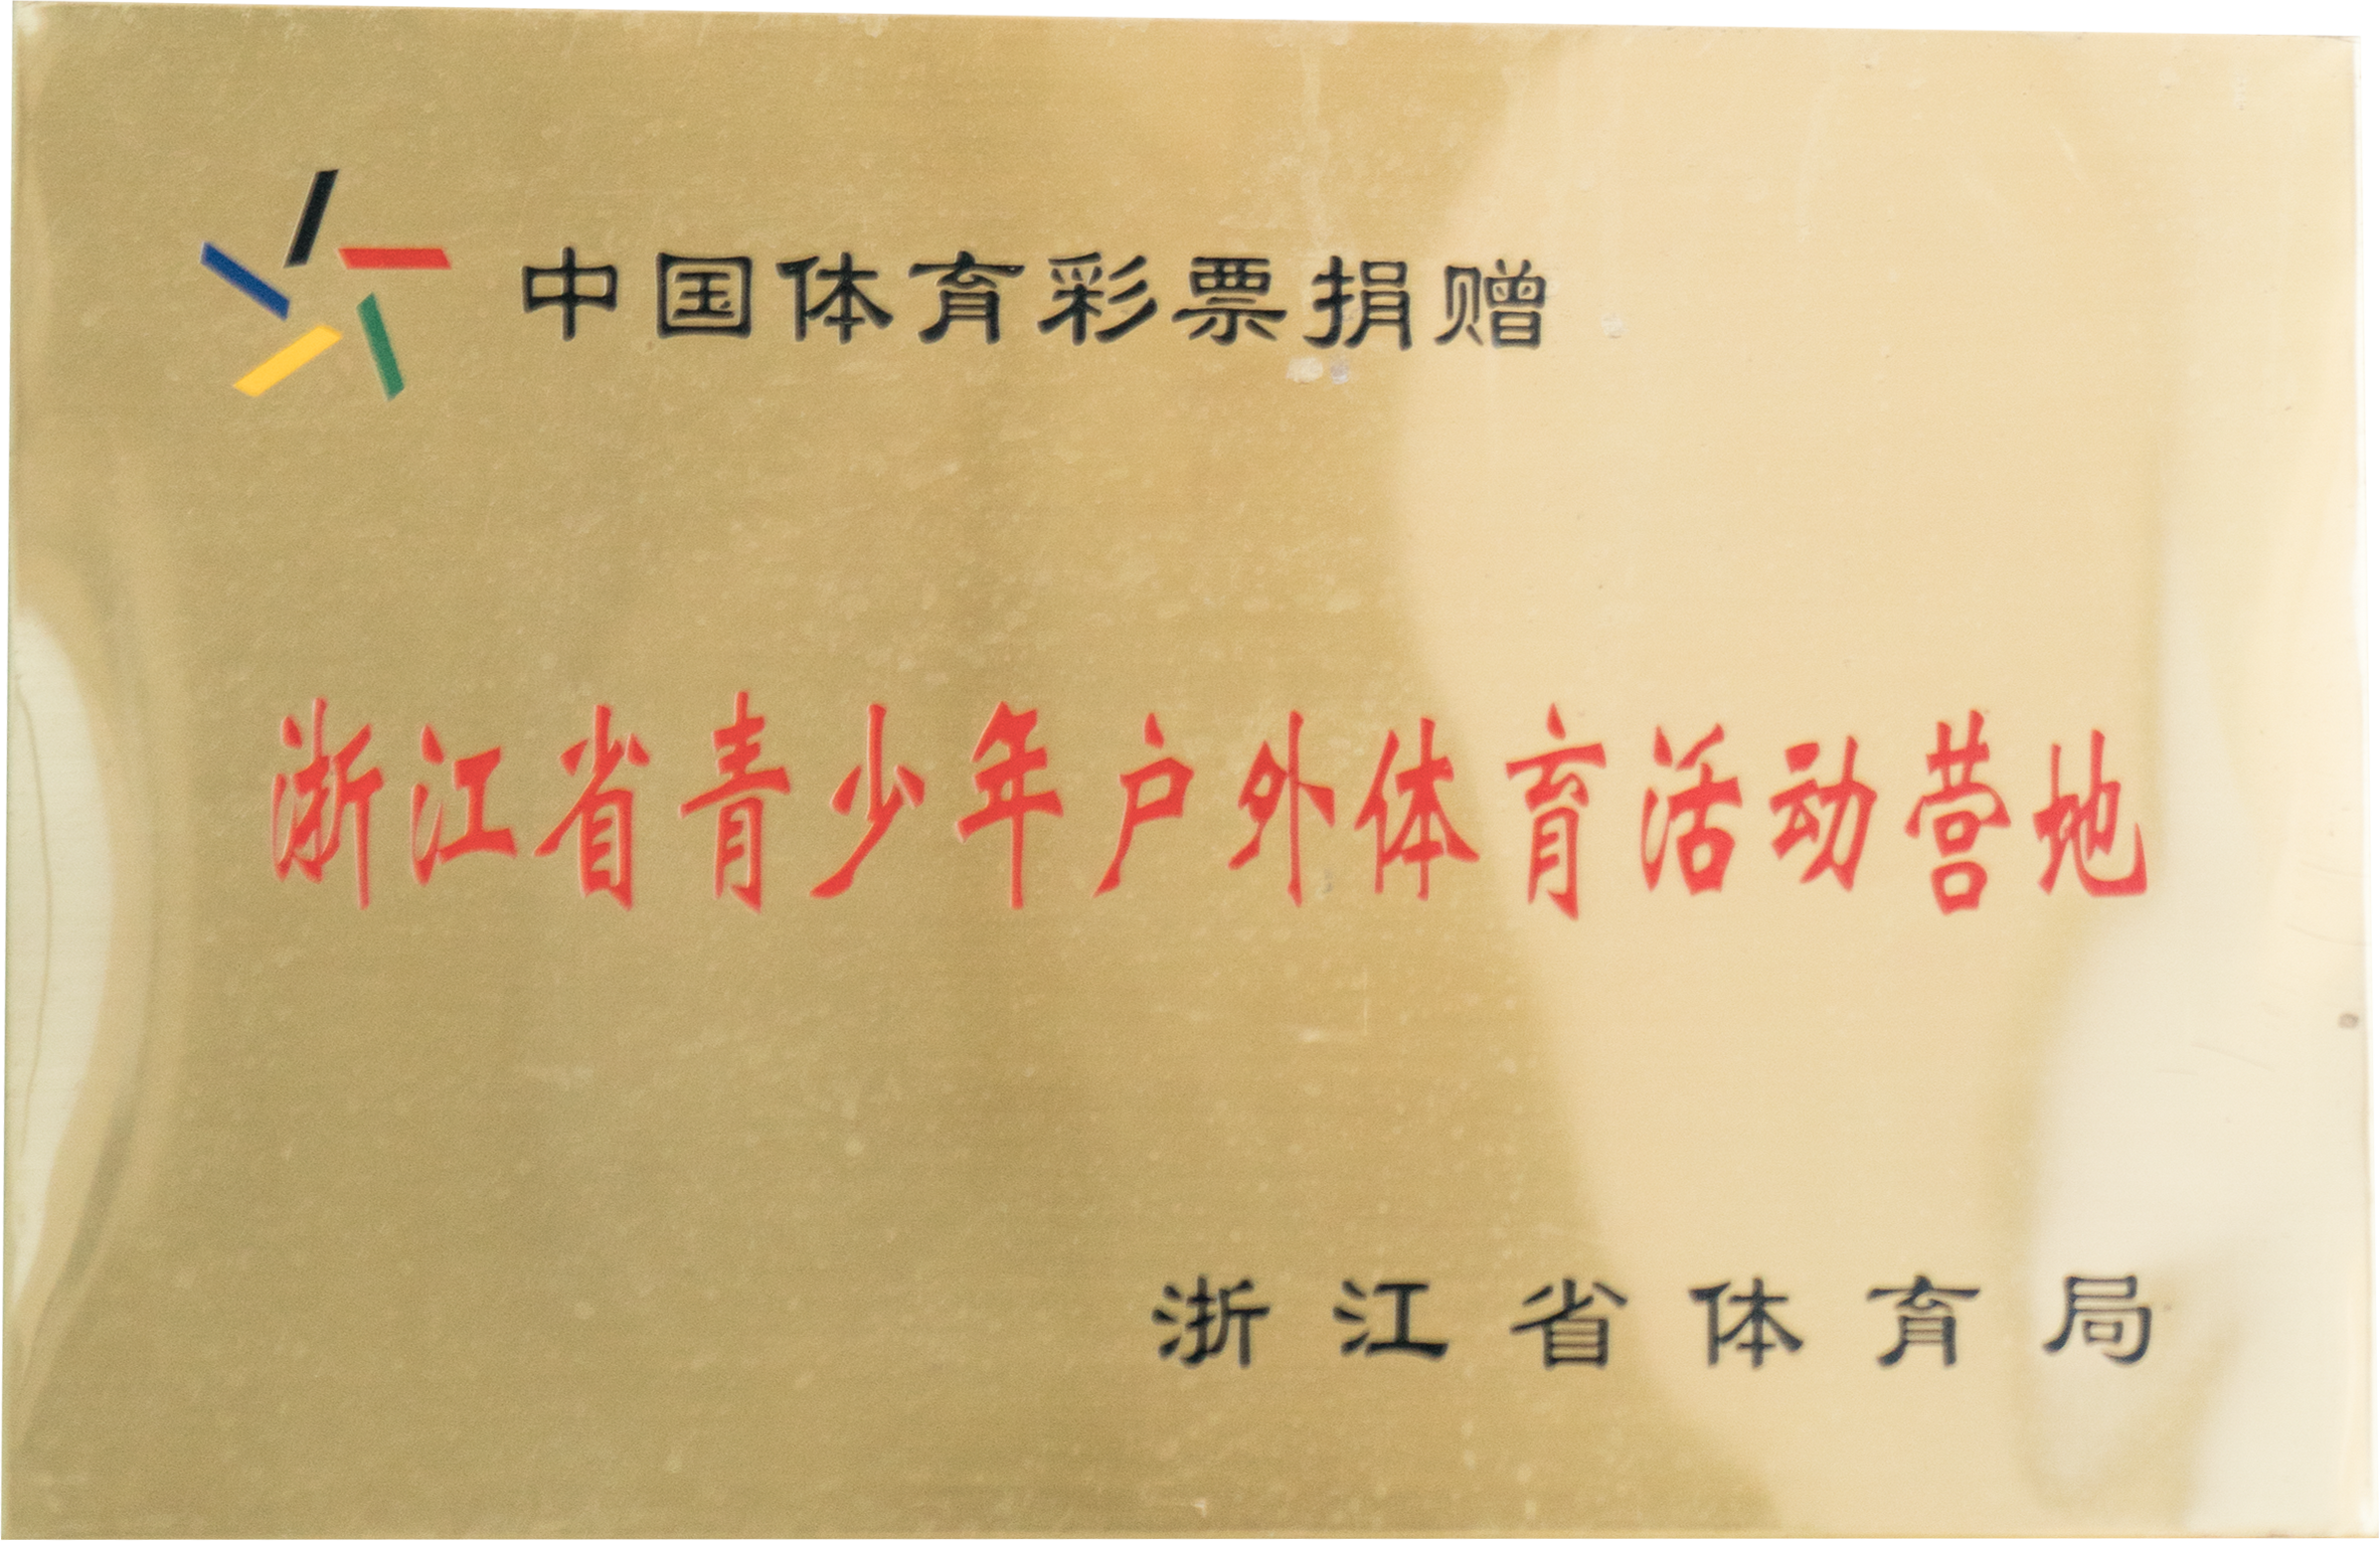 中国体育彩票捐赠
浙江省青少年户外体育活动营地
浙江省体育局